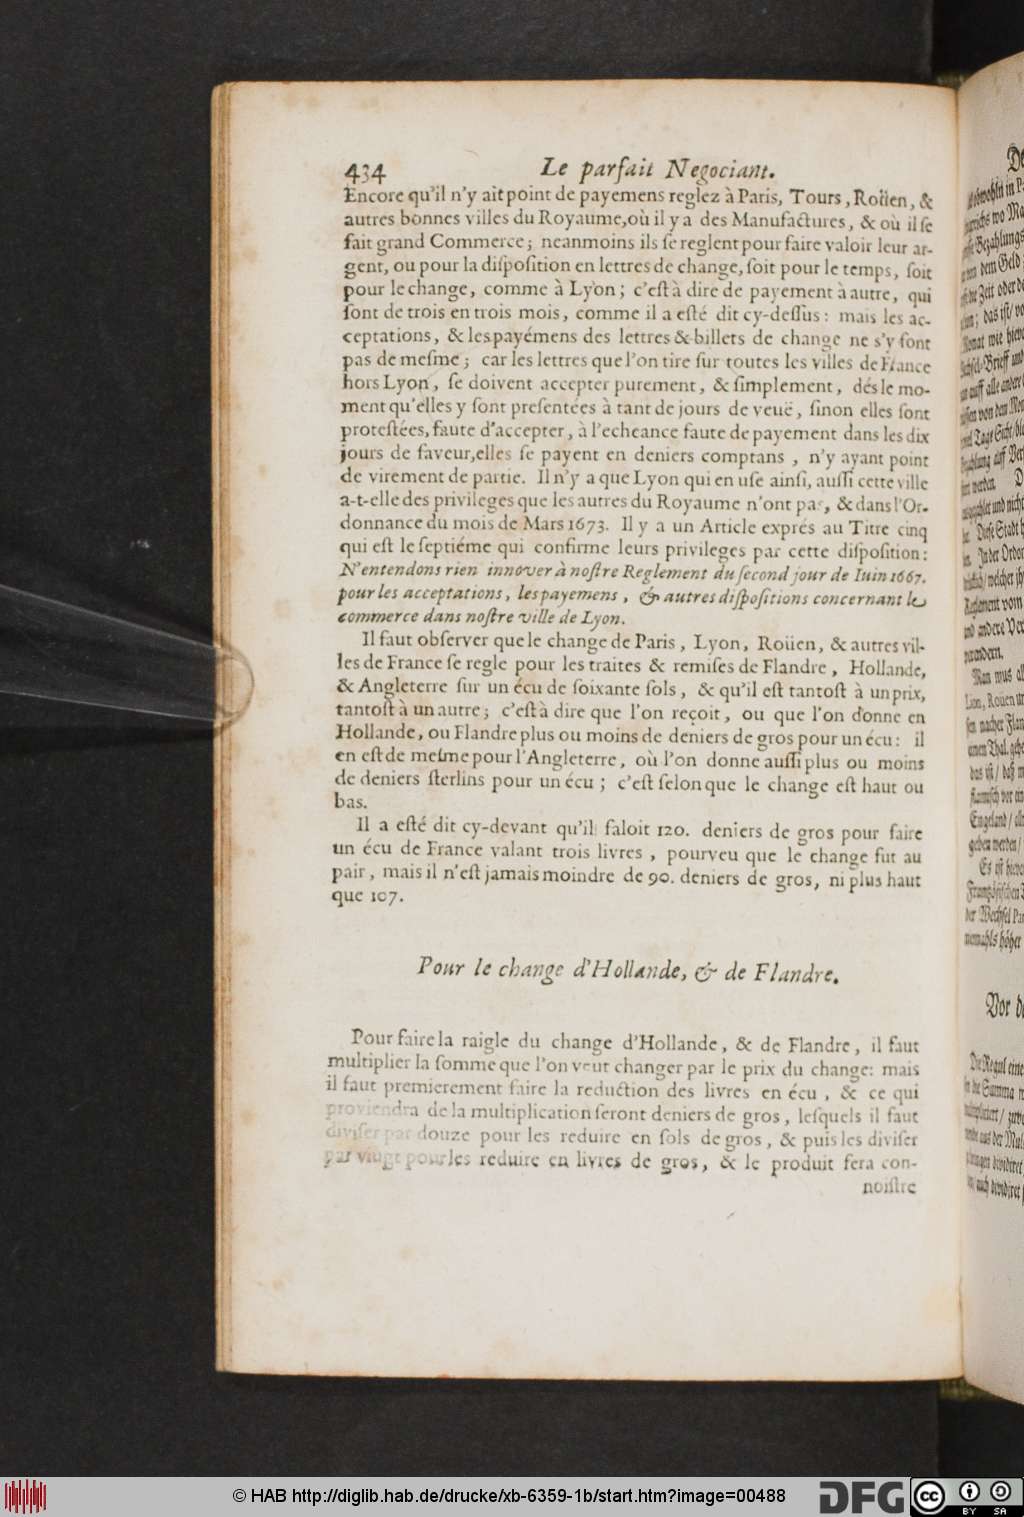 434 Le parfait Negociant.
Encore qu'il n'y ait point de payemens reglez à Paris, Tours, Roüen, &
autres bonnes villes du Royaume, où il y a des Manufactures, & où il ſe
fait grand Commerce; neanmoins ils ſe reglent pour faire valoir leur ar-
gent, ou pour la diſpoſition en lettres de change, ſoit pour le temps, ſoit
pour le change, comme à Lyon; c'eſt à dire de payement à autre, qui
ſont de trois en trois mois, comme il a eſté dit cy-deſſus: mais les ac-
ceptations, & les payémens des lettres & billets de change ne s'y font
pas de meſme; car les lettres que l'on tire ſur toutes les villes de France
hors Lyon, ſe doivent accepter purement, & ſimplement, dés le mo-
ment qu'elles y ſont preſentées à tant de jours de veuë, ſinon elles ſont
proteſtées, faute d'accepter, à l'echeance faute de payement dans les dix
jours de faveur, elles ſe payent en deniers comptans, n'y ayant point
de virement de partie. Il n'y a que Lyon qui en uſe ainſi, auſſi cette ville
a-t-elle des privileges que les autres du Royaume n'ont pas, & dans l'Or-
donnance du mois de Mars 1673. Il y a un Article exprés au Titre cinq
qui eſt le ſeptiéme qui confirme leurs privileges par cette diſpoſition:
N'entendons rien innover à noſtre Reglement du ſecond jour de Iuin 1667.
pour les acceptations, les payemens, & autres diſpoſitions concernant le
commerce dans noſtre ville de Lyon.
Il faut obſerver que le change de Paris, Lyon, Roüen, & autres vil-
les de France ſe regle pour les traites & remiſes de Flandre, Hollande,
& Angleterre ſur un écu de ſoixante ſols, & qu'il eſt tantoſt à un prix,
tantoſt à un autre; c'eſt à dire que l'on reçoit, ou que l'on donne en
Hollande, ou Flandre plus ou moins de deniers de gros pour un écu: il
en eſt de meſme pour l'Angleterre, où l'on donne auſſi plus ou moins
de deniers ſterlins pour un écu; c'eſt ſelon que le change eſt haut ou
bas.
Il a eſté dit cy-devant qu'il faloit 120. deniers de gros pour faire
un écu de France valant trois livres, pourveu que le change fut au
pair, mais il n'eſt jamais moindre de 90. deniers de gros, ni plus haut
que 107.
Pour le change d'Hollande, & de Flandre.
Pour faire la raigle du change d'Hollande, & de Flandre, il faut
multiplier la ſomme que l'on veut changer par le prix du change: mais
il faut premierement faire la reduction des livres en écu, & ce qui
proviendra de la multiplication ſeront deniers de gros, leſquels il faut
diviſer par douze pour les reduire en ſols de gros, & puis les diviſer
par vingt pour les reduire en livres de gros, & le produit fera con-
noiſtre
© HAB http://diglib.hab.de/drucke/xb-6359-1b/start.htm?image=00488
DFG
cc
BY SA